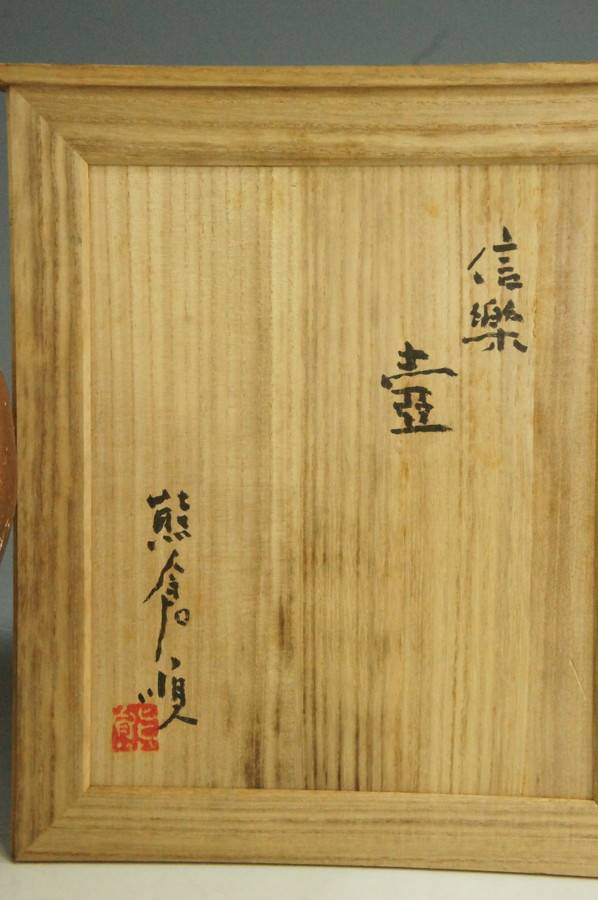 信樂
壺
熊倉順
熊